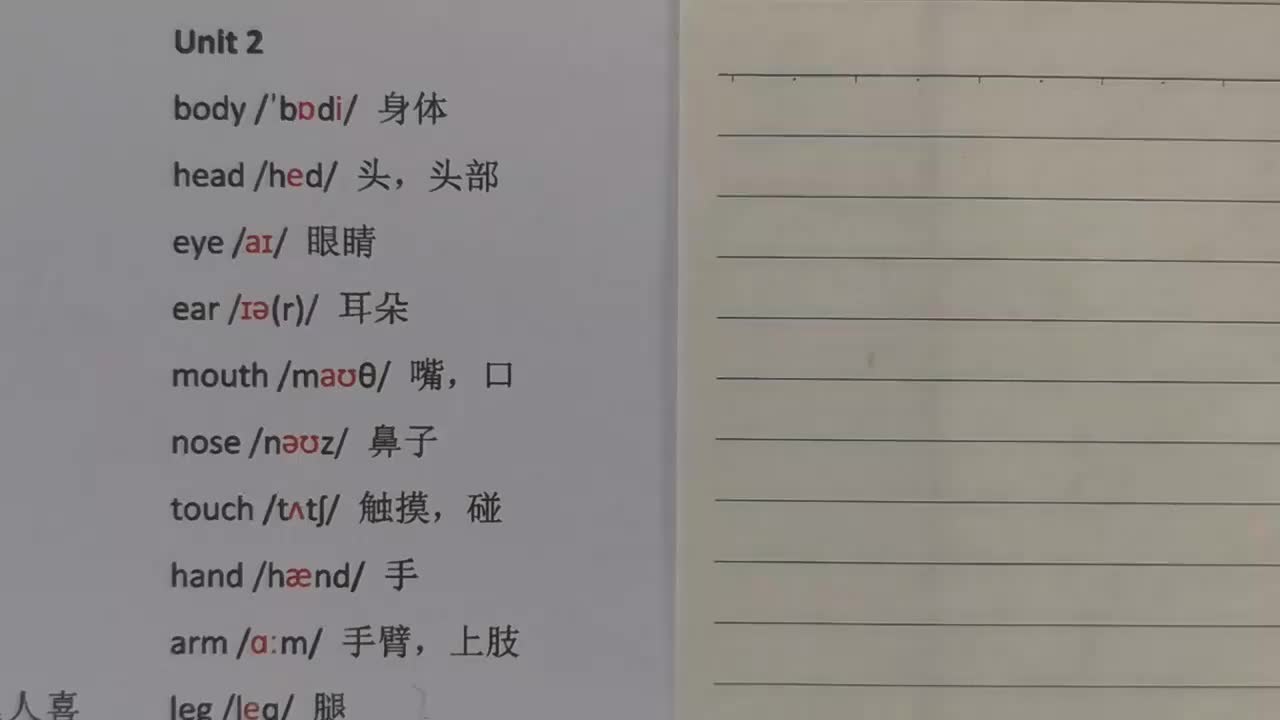 Unit 2
body /ˈbɒdi/ 身体
head /hed/ 头，头部
eye /aɪ/ 眼睛
ear /ɪə(r)/ 耳朵
mouth /maʊθ/ 嘴，口
nose /nəʊz/ 鼻子
touch /tʌtʃ/ 触摸，碰
hand /hænd/ 手
arm /ɑːm/ 手臂，上肢
人喜
leg /leg/ 腿